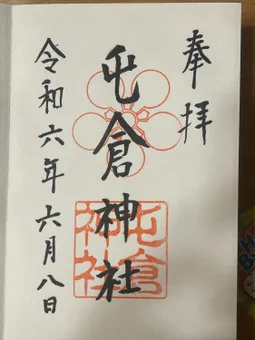 奉拝
屯倉神社
令和六年六月八日
屯倉
神社